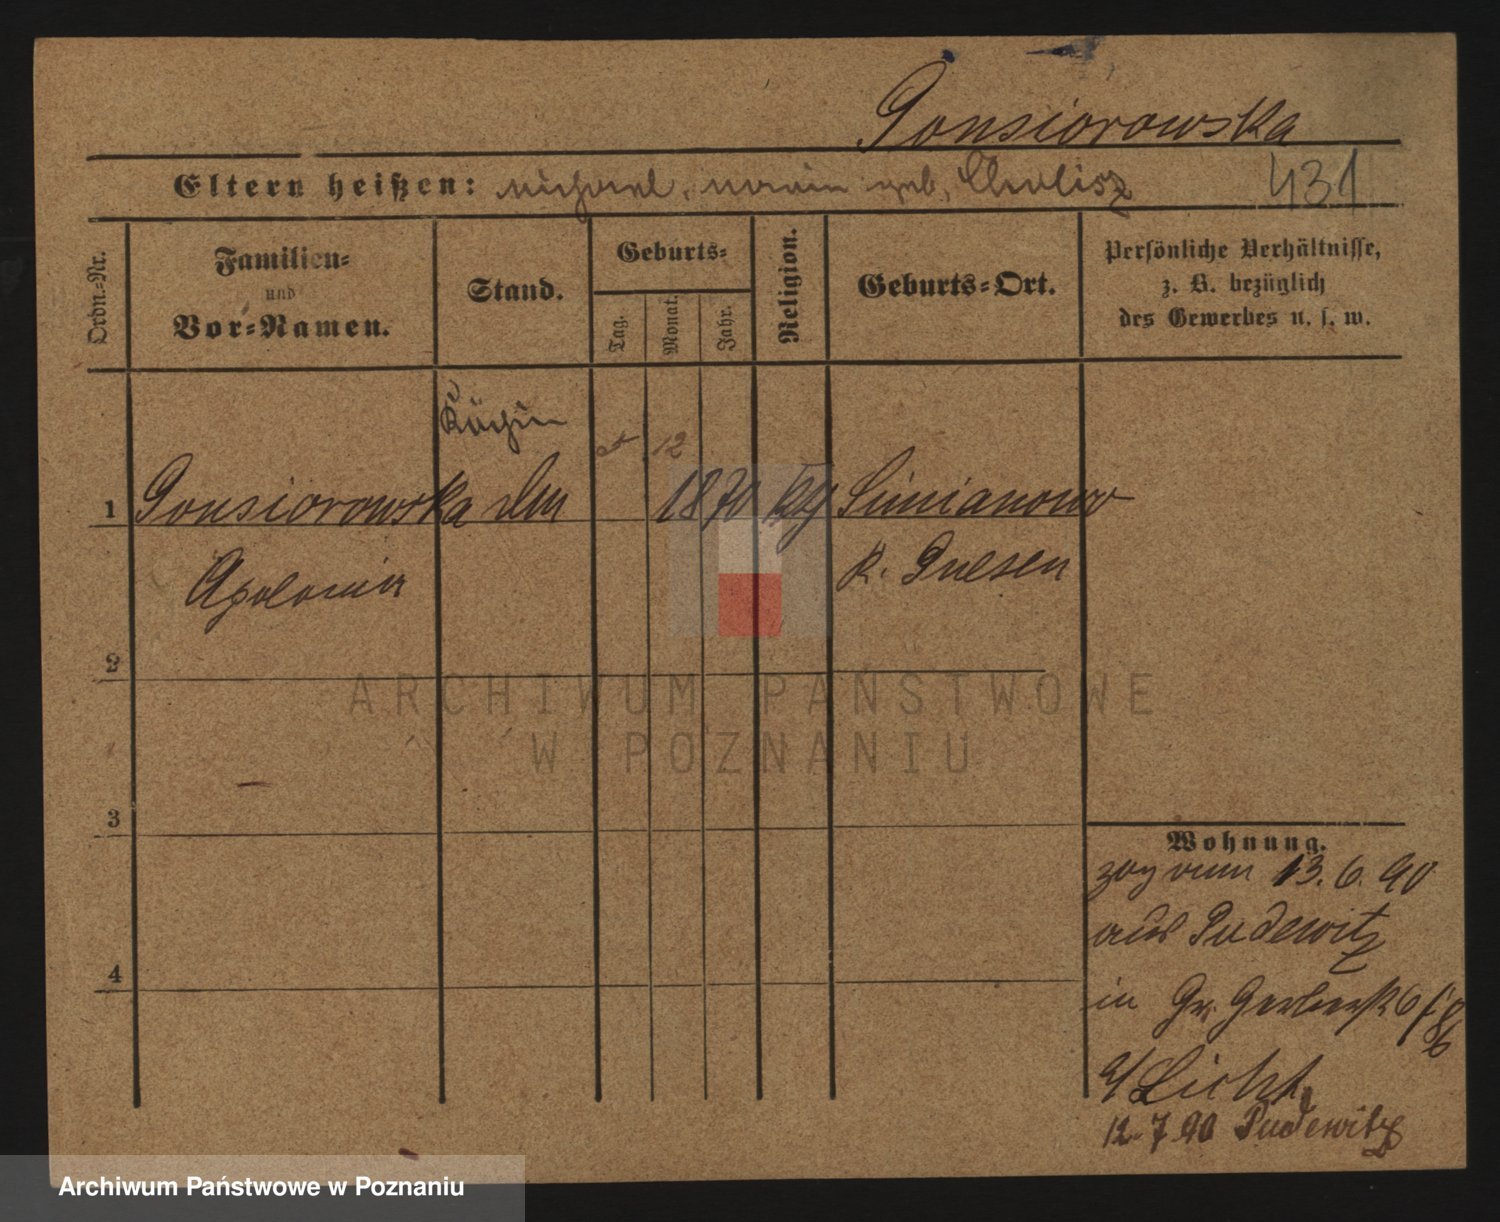 Gonsiorowska
Eltern heißen: Michael, Maria geb. Cholisz
431
Ordn.-Nr.
Familien-
und
Vor-Namen.
Stand.
Geburts-
Tag.
Monat.
Jahr.
Religion.
Geburts-Ort.
Persönliche Verhältnisse,
z. B. bezüglich
des Gewerbes u. s. w.
Köchin
12
1 Gonsiorowska 1870 Simianowo
Apolonia K. Gnesen
2
3
4
Wohnung.
zog vom 13.6.90
aus Pudewitz
in Gr. Gerberstr 6
Licht
12.7.90 Pudewitz
ARCHIWUM PAŃSTWOWE
W POZNANIU
Archiwum Państwowe w Poznaniu